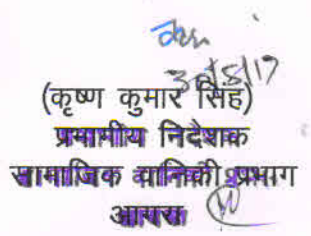 30/5/17
(कृष्ण कुमार सिंह)
प्रभागीय निदेशक
सामाजिक वानिकी प्रभाग
आगरा